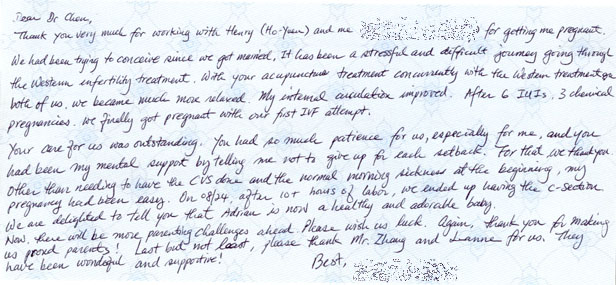 Dear Dr Chen,
Thank you very much for working with Henry (Ho-Yuen) and me for getting me pregnant.
We had been trying to conceive since we got married. It has been a stressful and difficult journey going through
the Western infertility treatment. With your acupuncture treatment concurrently with the Western treatment on
both of us, we became much more relaxed. My internal circulation improved. After 6 IUIs, 3 chemical
pregnancies, we finally got pregnant with our first IVF attempt.
Your care for us was outstanding. You had so much patience for us, especially for me, and you
had been my mental support by telling me not to give up for each setback. For that we thank you.
Other than needing to have the CVS done and the normal morning sickness at the beginning, my
pregnancy had been easy. On 08/24, after 10+ hours of labor, we ended up having the c-section.
We are delighted to tell you that Adrian is now a healthy and adorable baby.
Now, there will be more parenting challenges ahead. Please wish us luck. Again, thank you for making
us proud parents! Last but not least, please thank Mr. Zhang and Leanne for us. They
have been wonderful and supportive!
Best,